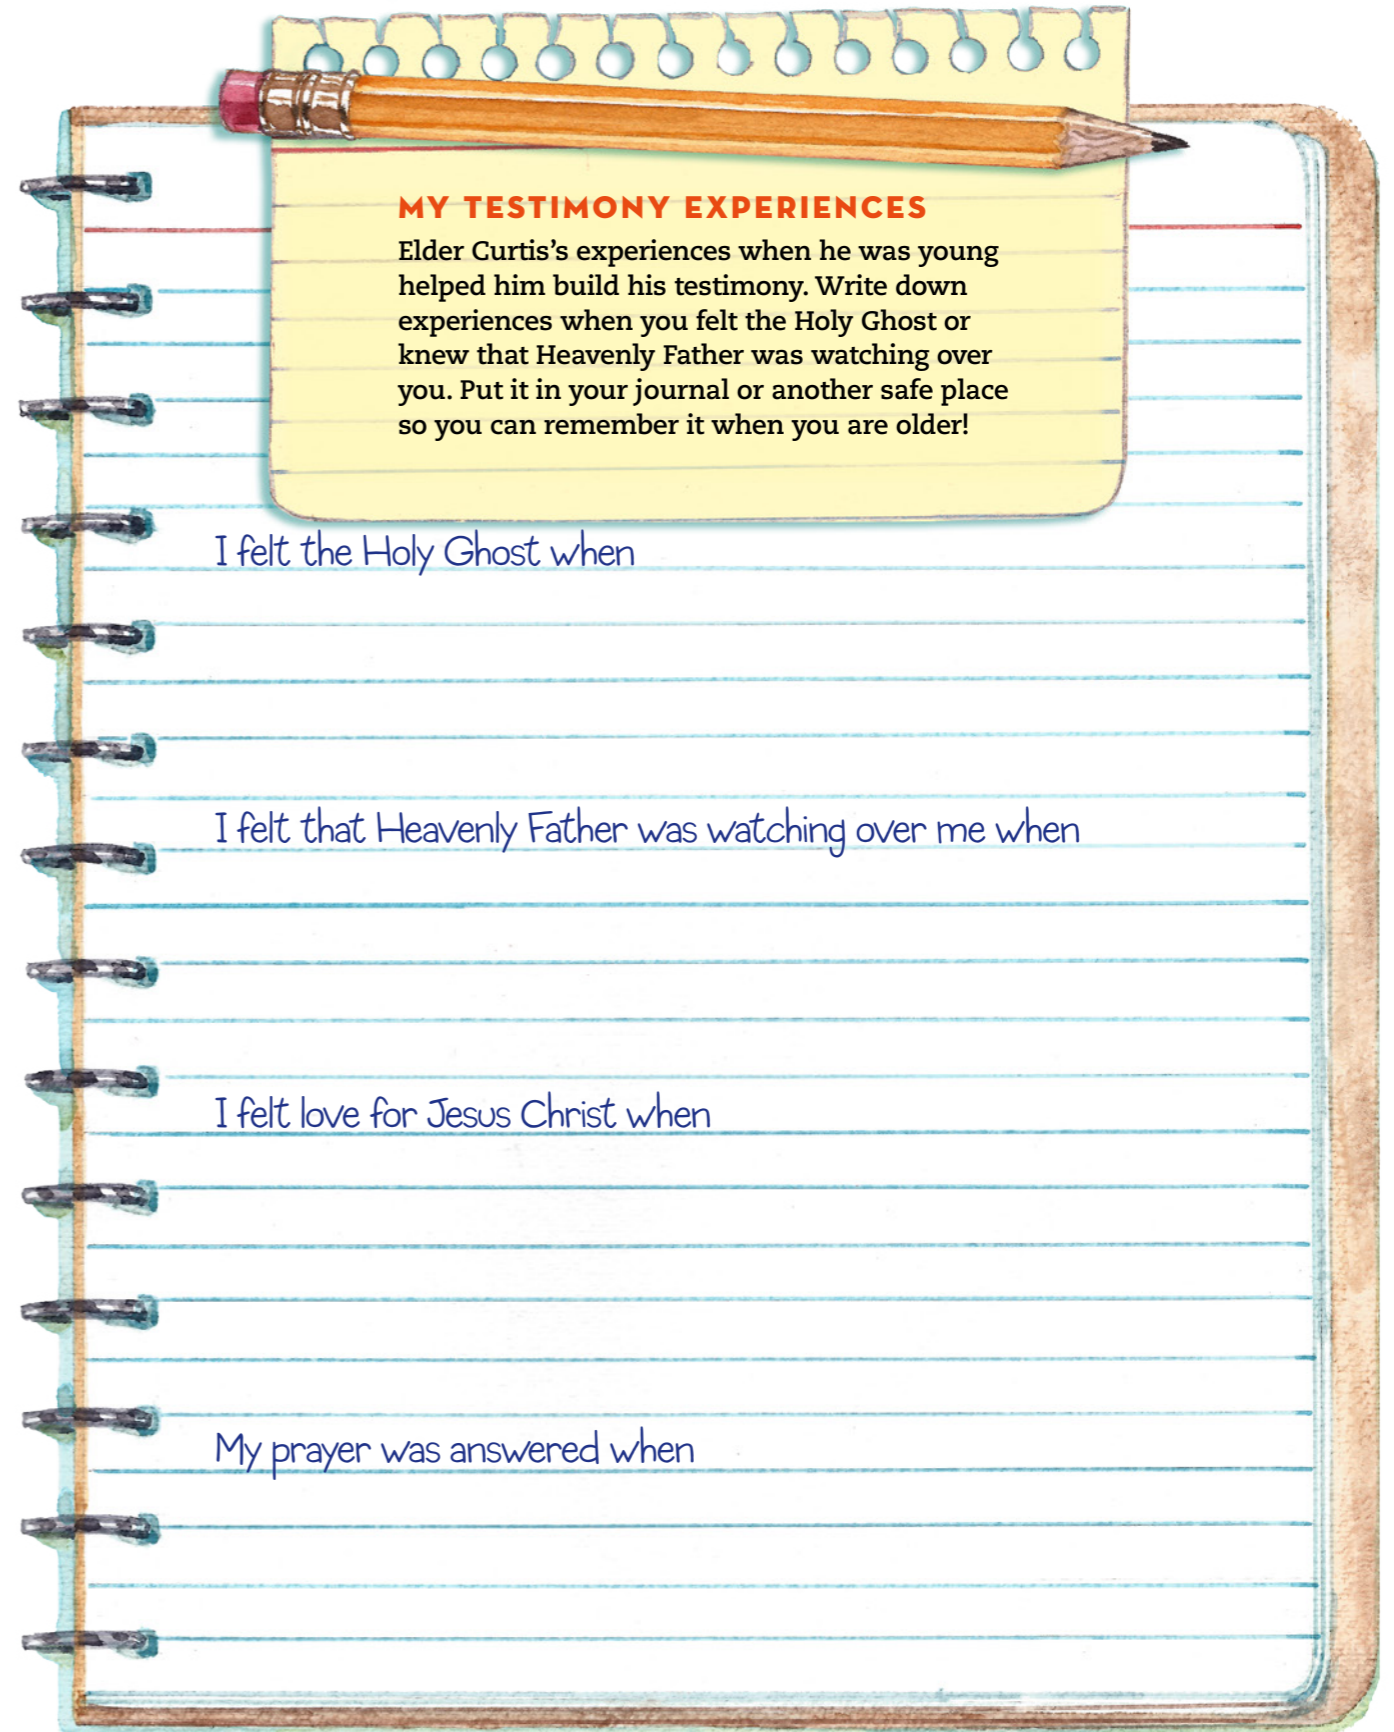 MY TESTIMONY EXPERIENCES
Elder Curtis’s experiences when he was young
helped him build his testimony. Write down
experiences when you felt the Holy Ghost or
knew that Heavenly Father was watching over
you. Put it in your journal or another safe place
so you can remember it when you are older!
I felt the Holy Ghost when
I felt that Heavenly Father was watching over me when
I felt love for Jesus Christ when
My prayer was answered when